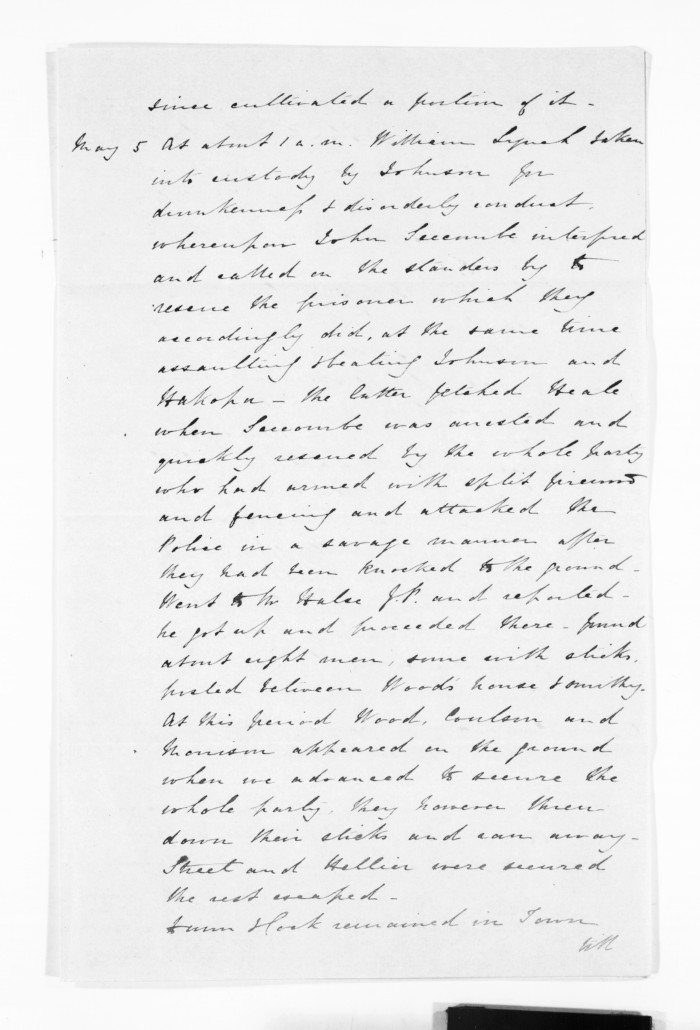 since cultivated a portion of it -
May 5 At about 1 a.m. William Lynch taken
into custody by Johnson for
drunkenness & disorderly conduct,
whereupon John Seccombe interfered
and called on the standers by to
rescue the prisoner which they
accordingly did, at the same time
assaulting & beating Johnson and
Hakopa - the latter fetched Heale
when Seccombe was arrested and
quickly rescued by the whole party
who had armed with split firewood
and fencing and attacked the
Police in a savage manner after
they had been knocked to the ground -
Went to Mr Halse J.P. and reported -
he got up and proceeded there - found
about eight men, some with sticks,
posted between Wood's house & smithy -
At this period Wood, Coulson and
Morrison appeared on the ground
when we advanced to secure the
whole party, they however threw
down their sticks and ran away -
Street and Hellier were secured
the rest escaped -
& Cook remained in Town
with